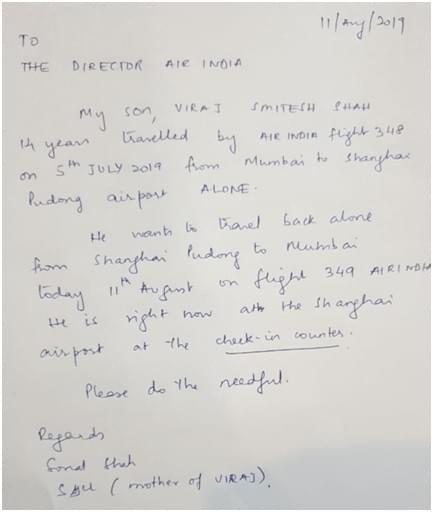 11/Aug/2019
TO
THE DIRECTOR AIR INDIA
My son, VIRAJ SMITESH SHAH
14 years travelled by AIR INDIA flight 348
on 5th JULY 2019 from Mumbai to Shanghai
Pudong airport ALONE.
He wants to travel back alone
from Shanghai Pudong to Mumbai
today 11th August on flight 349 AIR INDIA
He is right now at the Shanghai
airport at the check-in counter.
Please do the needful.
Regards
Sonal Shah
(mother of VIRAJ).